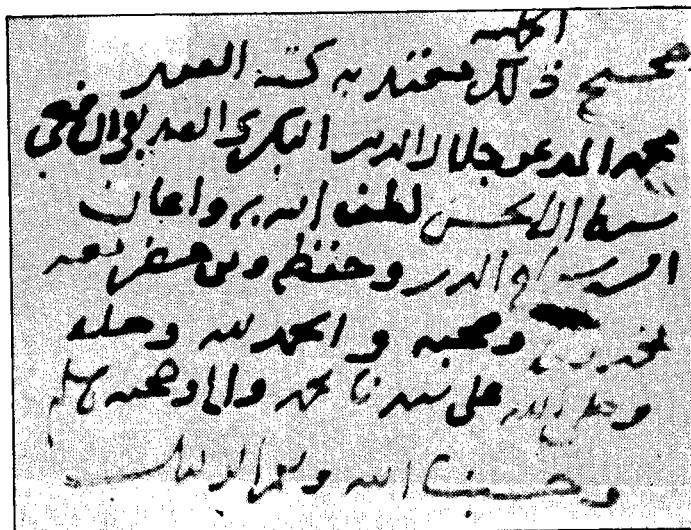 صحيح ذلك معتد به كتبه الفقير
محمد المدعو جلال الدين البكري الصديقي الشافعي
سبط آل الحسن لطف الله به واعان
الدين وحفظه ومن حضر معه
وصحبه والحمد لله وحده
وصلى الله على سيدنا محمد واله وصحبه وسلم
وحسبنا الله ونعم الوكيل